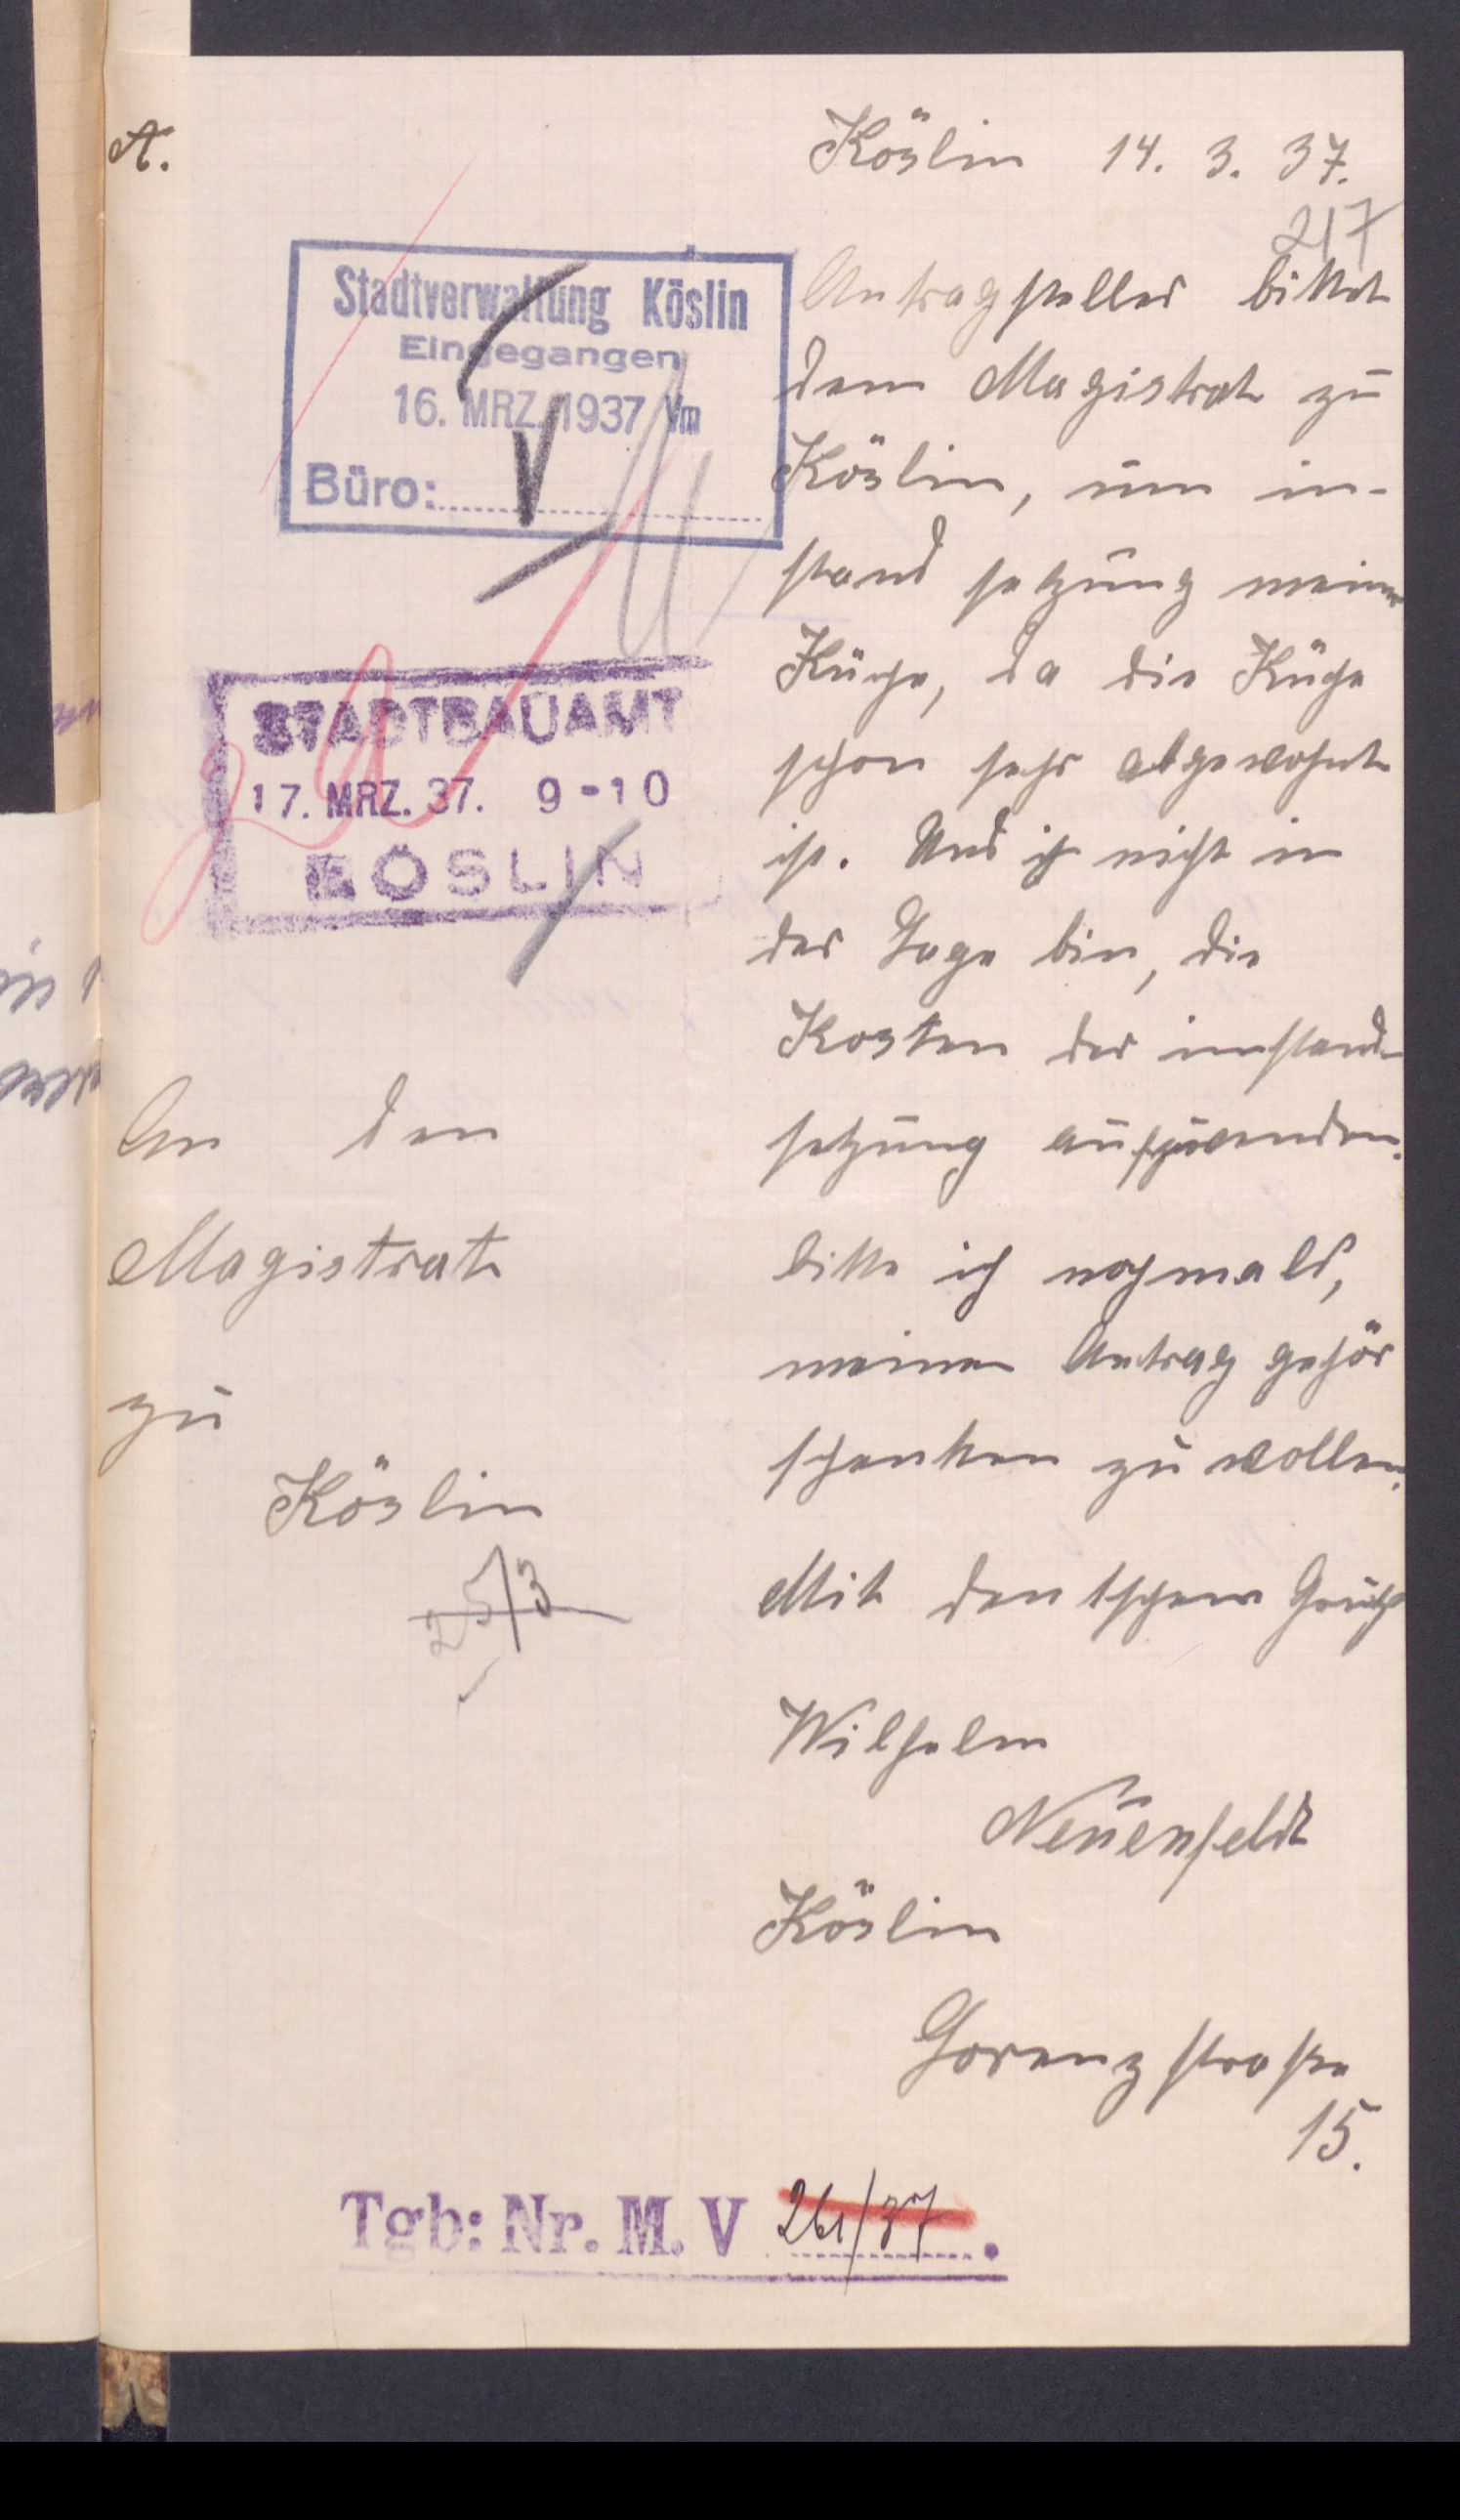 A.
Köslin 14. 3. 37.
217
Stadtverwaltung Köslin
Eingegangen
16. MRZ. 1937 Vm
Büro: V
STADTBAUAMT
17. MRZ. 37. 9-10
KÖSLIN
Antragsteller bittet
dem Magistrat zu
Köslin, um in-
stand setzung meiner
Küche, da die Küche
schon sehr abgewohnt
ist. Und ich nicht in
der Lage bin, die
Kosten der innstand-
setzung aufzuwenden.
bitte ich nochmals,
meinen Antrag gehör
schenken zu wollen.
Mit deutschem Gruß
Wilhelm
Neuenfeldt
Köslin
straße
15.
An den
Magistrat
zu
Köslin
25/3
Tgb: Nr. M. V 261/37.